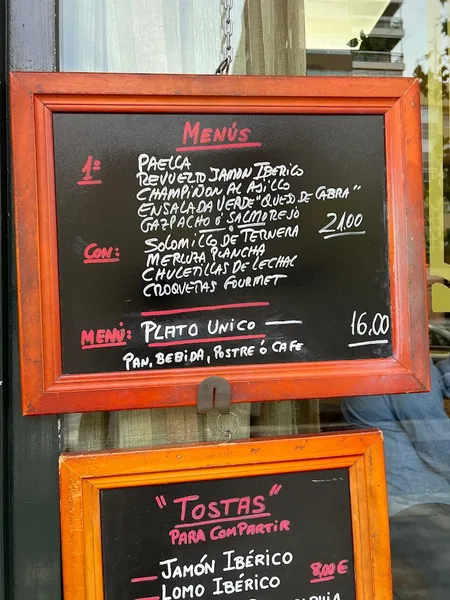 MENÚS
1º PAELLA
REVUELTO JAMON IBERICO
CHAMPIÑON AL AJILLO
ENSALADA VERDE "QUESO DE CABRA"
GAZPACHO ó SALMOREJO 21,00
CON: SOLOMILLO DE TERNERA
MERLUZA PLANCHA
CHULETILLAS DE LECHAL
CROQUETAS GOURMET
MENÚ: PLATO UNICO 16,00
PAN, BEBIDA, POSTRE ó CAFE
"TOSTAS"
PARA COMPARTIR
JAMÓN IBÉRICO
LOMO IBÉRICO 8,00€